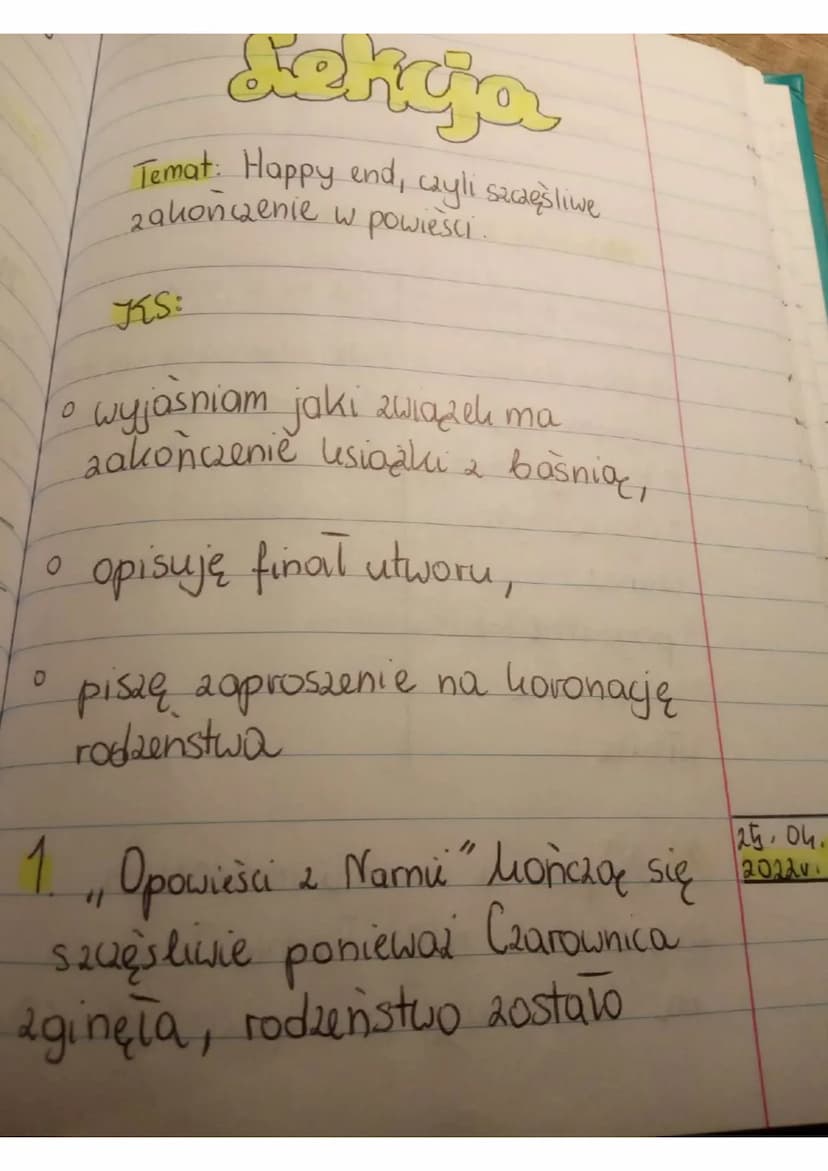 Lekcja
Temat: Happy end, czyli szczęśliwe
zakończenie w powieści.
KS:
o wyjaśniam jaki związek ma
zakończenie książki z baśnią,
o opisuję finał utworu,
o piszę zaproszenie na koronację
rodzeństwa
25.04.
2022r.
1. „Opowieści z Narnii" kończą się
szczęśliwie ponieważ Czarownica
zginęła, rodzeństwo zostało